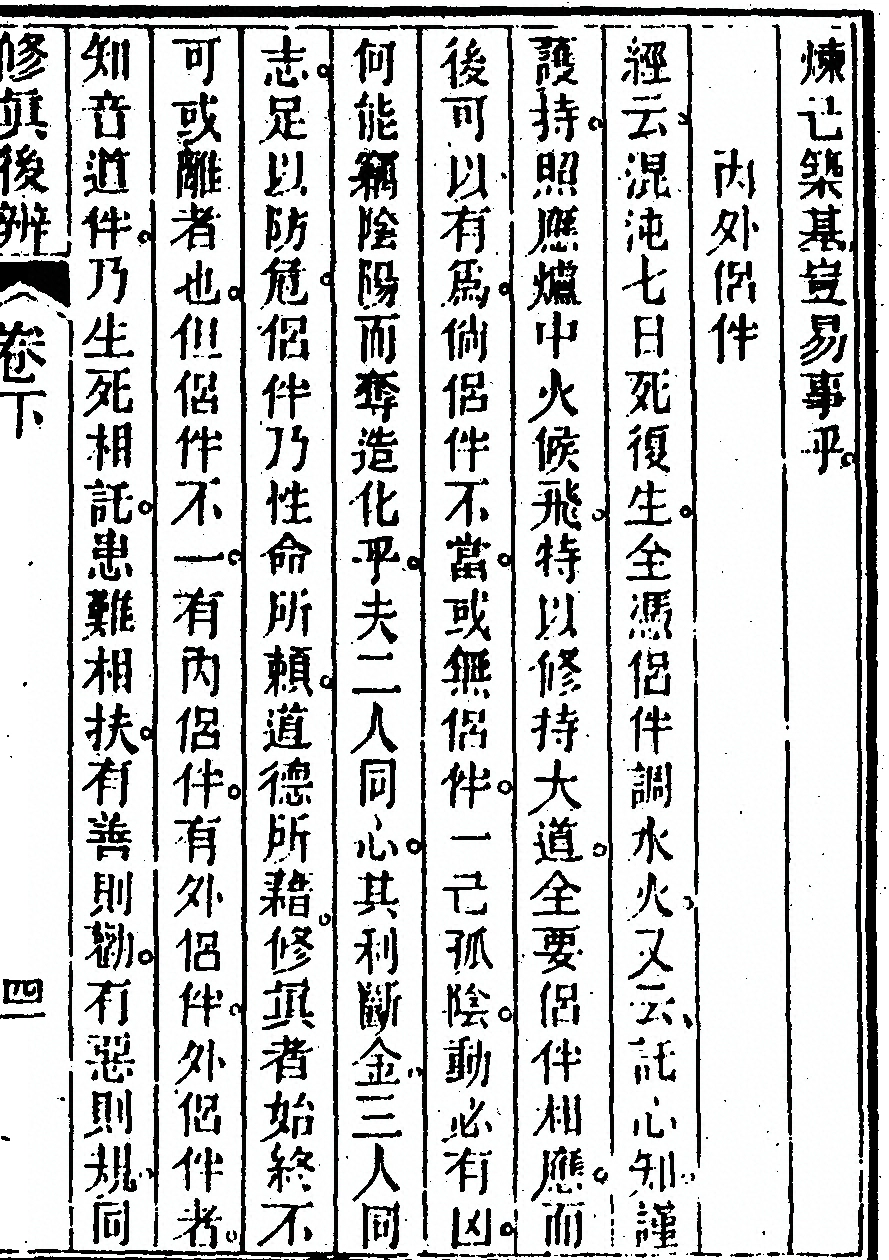 煉已築基豈易事乎。
內外侶伴
經云、混沌七日死復生。全憑侶伴調水火、又云、託心知謹
護持。照應爐中火候飛。特以修持大道。全要侶伴相應。而
後可以有爲。倘侶伴不當。或無侶伴。一己孤陰。動必有凶。
何能竊陰陽而奪造化乎。夫二人同心。其利斷金、三人同
志。足以防危。侶伴乃性命所賴。道德所藉。修眞者始終不
可或離者也。但侶伴不一。有內侶伴。有外侶伴。外侶伴者。
知音道伴。乃生死相託。患難相扶。有善則勸。有惡則規、同
修眞後辨 卷下 四